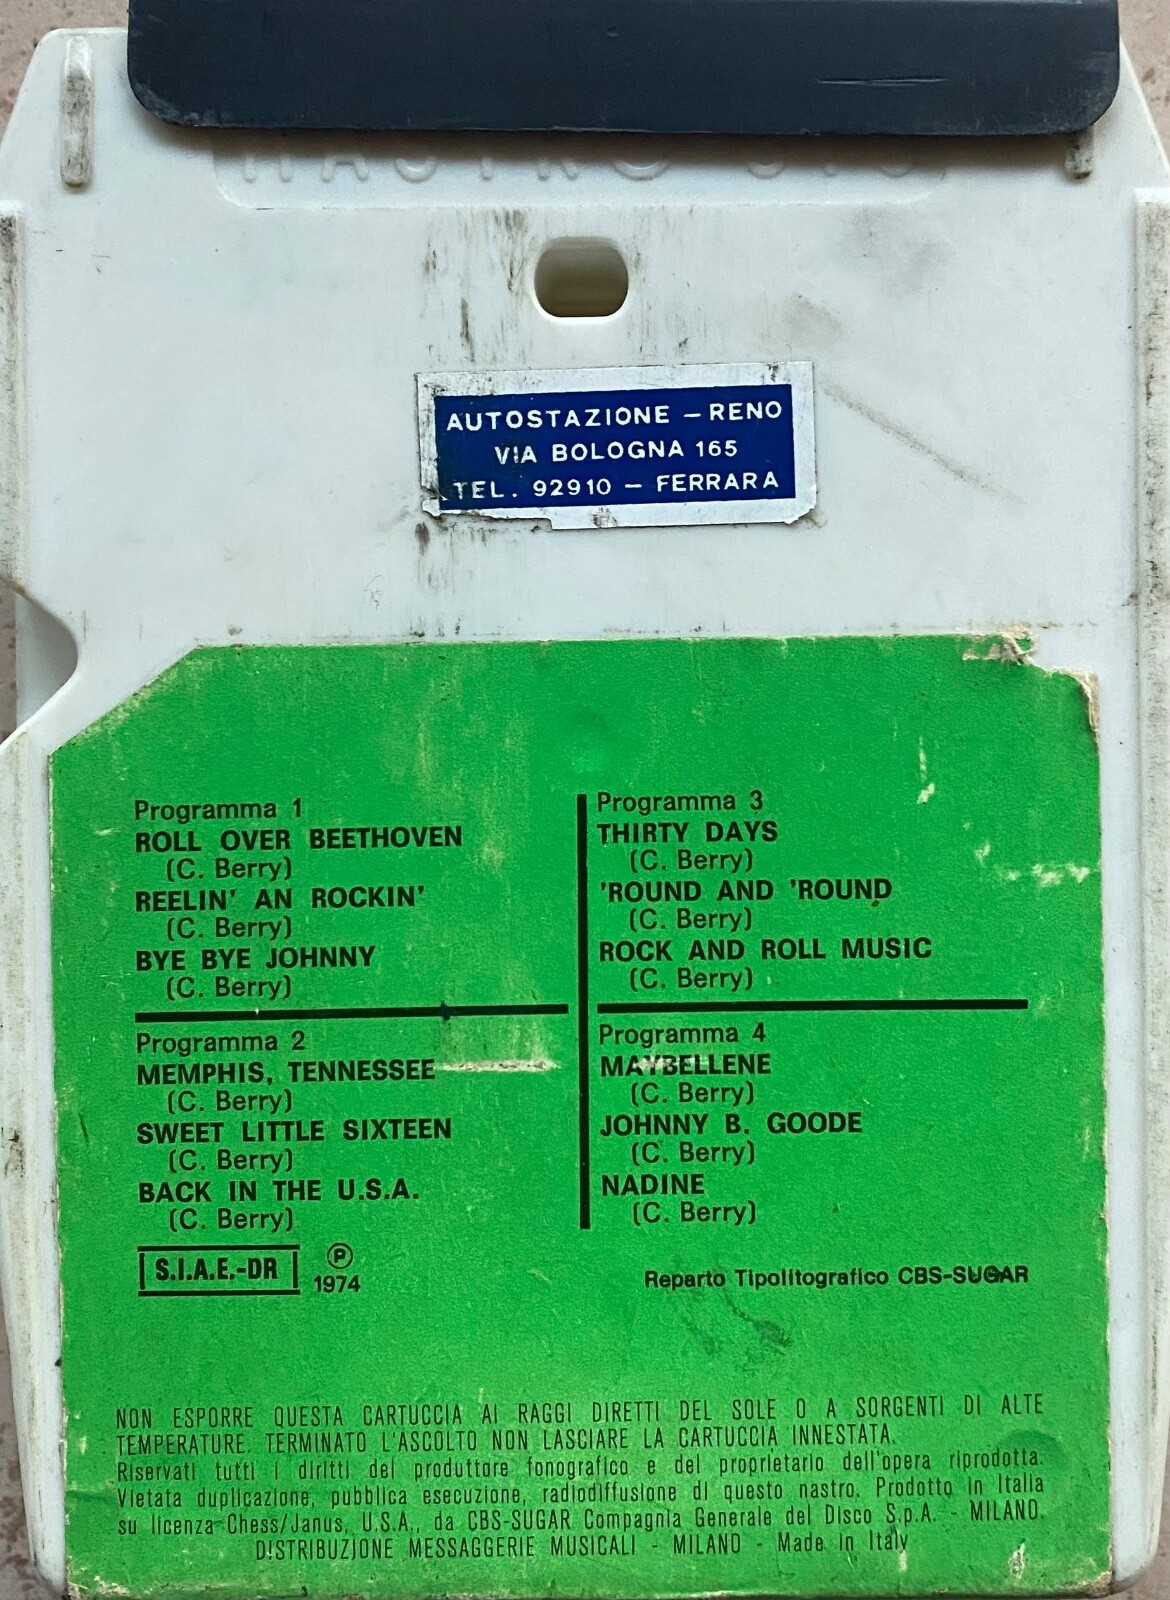 NASTRO S.8.
AUTOSTAZIONE – RENO
VIA BOLOGNA 165
TEL. 92910 – FERRARA
Programma 1
ROLL OVER BEETHOVEN
(C. Berry)
REELIN' AN ROCKIN'
(C. Berry)
BYE BYE JOHNNY
(C. Berry)
Programma 2
MEMPHIS, TENNESSEE
(C. Berry)
SWEET LITTLE SIXTEEN
(C. Berry)
BACK IN THE U.S.A.
(C. Berry)
Programma 3
THIRTY DAYS
(C. Berry)
'ROUND AND 'ROUND
(C. Berry)
ROCK AND ROLL MUSIC
(C. Berry)
Programma 4
MAYBELLENE
(C. Berry)
JOHNNY B. GOODE
(C. Berry)
NADINE
(C. Berry)
S.I.A.E.-DR
Ⓟ
1974
Reparto Tipolitografico CBS-SUGAR
NON ESPORRE QUESTA CARTUCCIA AI RAGGI DIRETTI DEL SOLE O A SORGENTI DI ALTE
TEMPERATURE. TERMINATO L'ASCOLTO NON LASCIARE LA CARTUCCIA INNESTATA.
Riservati tutti i diritti del produttore fonografico e del proprietario dell'opera riprodotta.
Vietata duplicazione, pubblica esecuzione, radiodiffusione di questo nastro. Prodotto in Italia
su licenza Chess/Janus, U.S.A., da CBS-SUGAR Compagnia Generale del Disco S.p.A. - MILANO.
DISTRIBUZIONE MESSAGGERIE MUSICALI - MILANO - Made in Italy